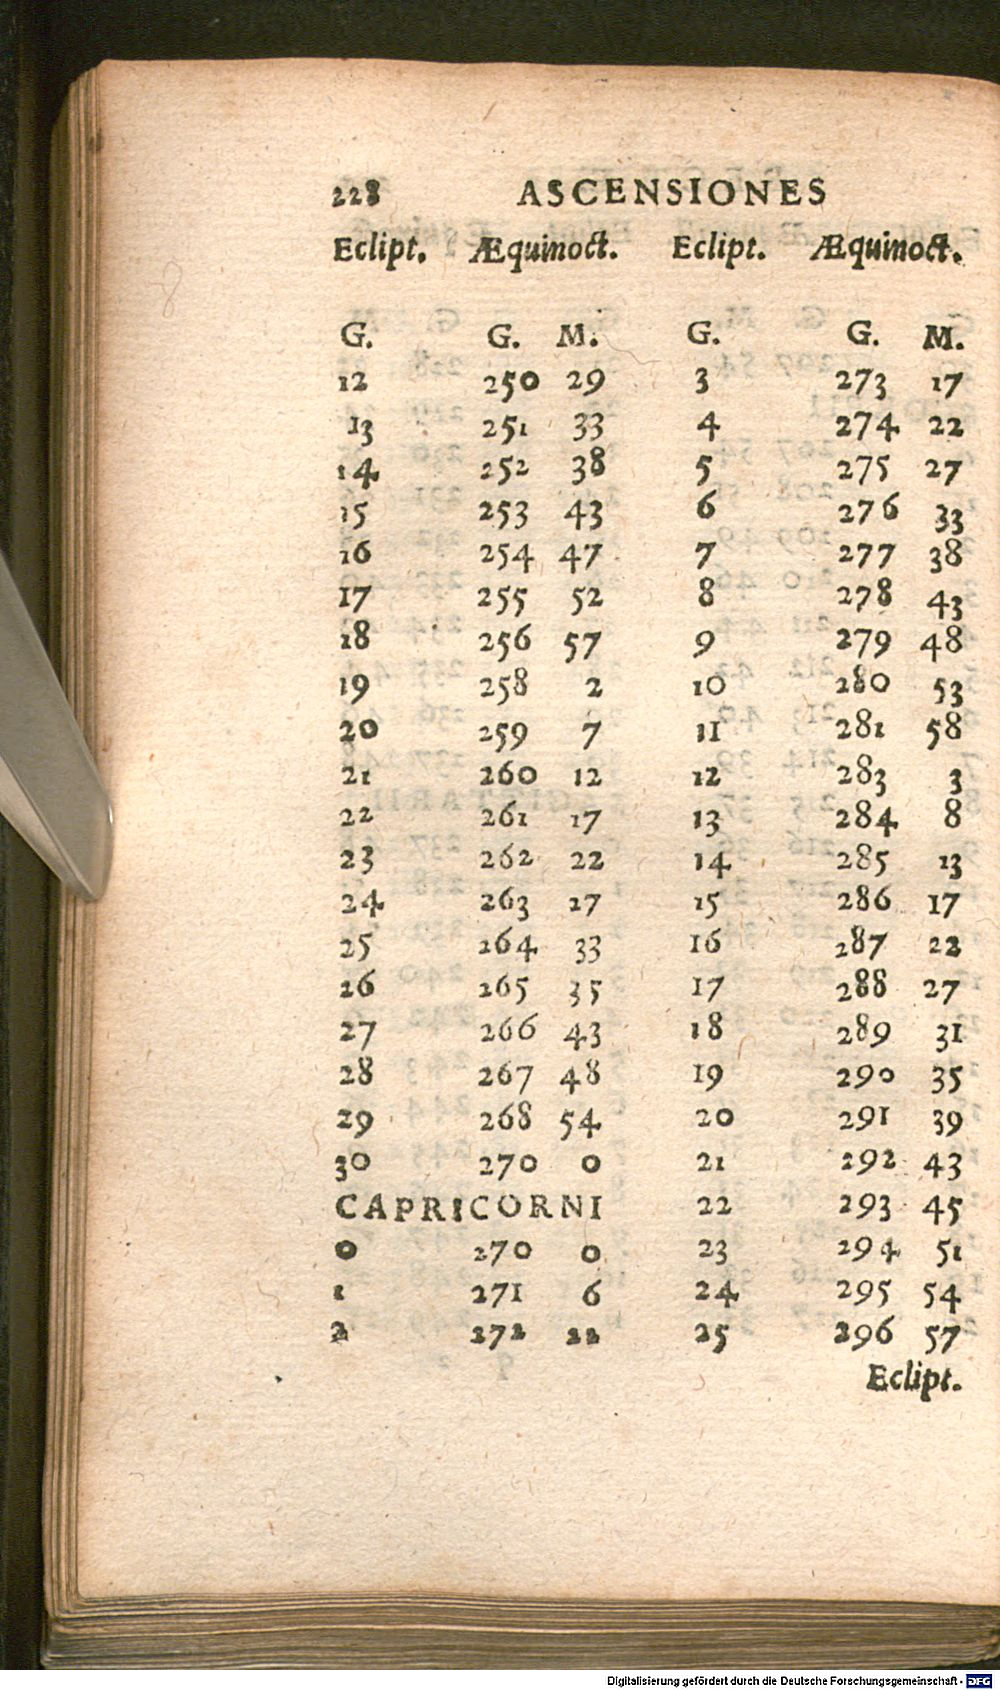 228 ASCENSIONES
Eclipt. Æquinoct. Eclipt. Æquinoct.
G. G. M. G. G. M.
12 250 29 3 273 17
13 251 33 4 274 22
14 252 38 5 275 27
15 253 43 6 276 33
16 254 47 7 277 38
17 255 52 8 278 43
18 256 57 9 279 48
19 258 2 10 280 53
20 259 7 11 281 58
21 260 12 12 283 3
22 261 17 13 284 8
23 262 22 14 285 13
24 263 27 15 286 17
25 264 33 16 287 22
26 265 35 17 288 27
27 266 43 18 289 31
28 267 48 19 290 35
29 268 54 20 291 39
30 270 0 21 292 43
CAPRICORNI 22 293 45
0 270 0 23 294 51
1 271 6 24 295 54
2 272 22 25 296 57
Eclipt.
Digitalisierung gefördert durch die Deutsche Forschungsgemeinschaft - DFG